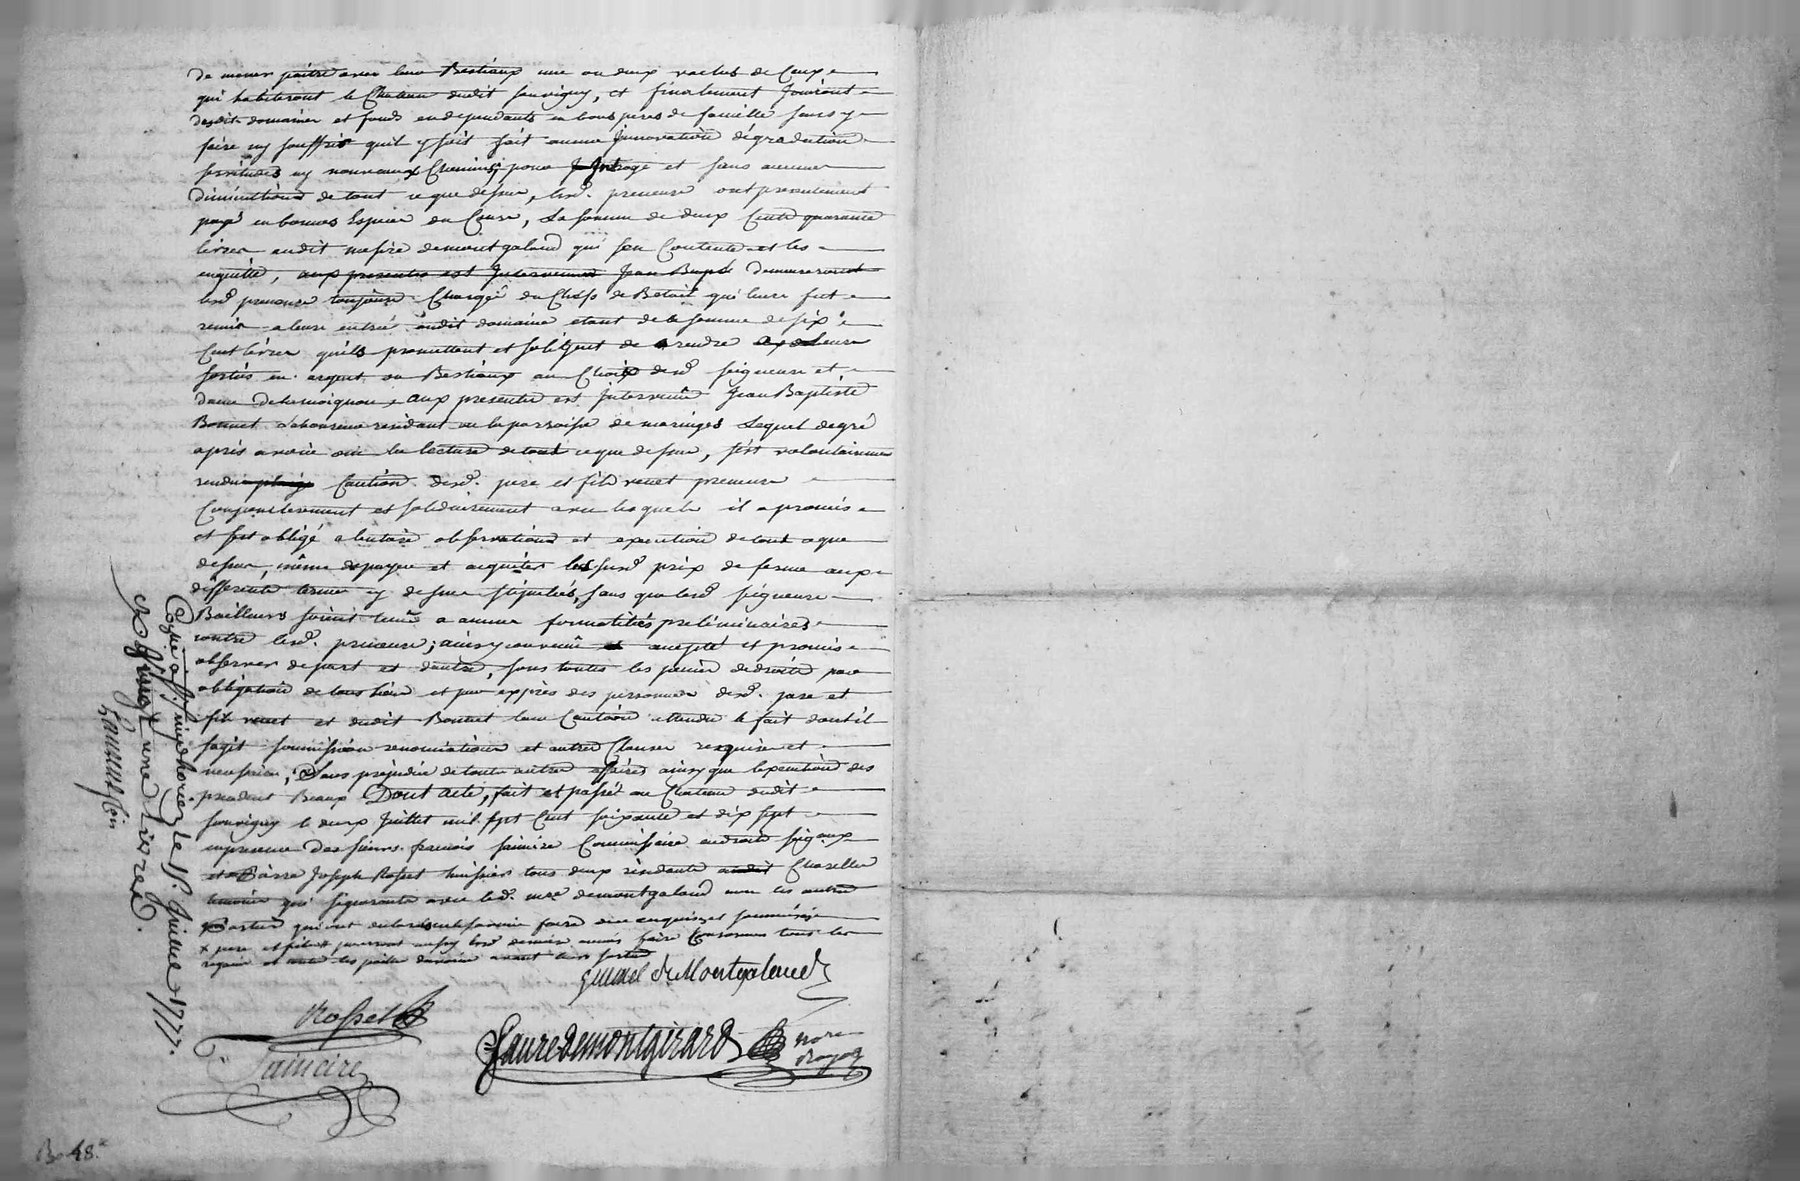 de mener paitre avec leur Bestiaux une ou deux vaches de Ceux
qui habiteront le Chateau dudit Souvigny, et finalement Jouiront
desdit domaines et fonds en dependants en bons peres de famille sans y
faire ny souffrir quil y soit fait aucune Jnnovation dégradation
servitudes ny nouveaux Chemins, pour et sans aucune
diminution de tout ce que dessus, lesd. preneurs ont presentement
payé en bonnes Especes du Cours, La somme de deux Cents quarante
livres audit messire demontgaland qui sen Contente et les
enquitte, aux presentes est Jntervenu Jean Bapt demeureront
lesd preneurs toujours Chargés du Cheps de Betail qui leurs fut
remis a leurs entrée audit domaine etant de la somme de six
Cent livres quils promettent et sobligent de rendre a leurs
sorties en argent ou Bestiaux au Choix desd seigneurs et
dame delamoignon, aux presentes est Jntervenu Jean Baptiste
Bonnet Laboureur residant en la parroisse de maringes Lequel de gré
après avoir oui la lecture de tout ce que dessus, sest volontairement
rendu Caution desd. pere et fils venet preneurs
Conjointement et solidairement avec lesquels il a promis
et sest obligé a lentiere observation et execution de tout ce que
dessus, même de payer et acquiter le susd prix de ferme aux
differents termes cy dessus stipulés, sans que lesd seigneurs
Bailleurs soient tenus a aucune formalités preliminaires
contre lesd. preneurs; ainsy convenu accepté et promis
observer de part et dautre, sous toutes les peines de droits par
obligation de tous biens et par exprès des personnes desd. pere et
fils venet et dudit Bonnet leur Caution attendu le fait dont il
sagit soumission renonciations et autres Clauses requises et
necessaires, Sans prejudice de toutes autres affaires ainsy que lexecution des
precedent Beaux Dont acte, fait et passé au Chateau dudit
Souvigny le deux Juillet mil sept Cent soixante et dix sept
en presence des sieurs francois saincire Commissaire en droits seig.aux
et Pierre Joseph Rosset huissier tous deux residants Chazelles
temoins qui signeronts avec led. mre demontgaland non les autres
Parties qui ont declarés ne le savoir faire de ce enquis et sommés
x pere et fils payeront aussy lesd derniers avant faire Consommer tous les
avant leurs sorties
gumel de Montgaland
Rosset
Faure de montgirard no.re royal
Saincire
Controlé a St Simphorien le 15. Juillet 1777.
Reçu livres
B. 48.